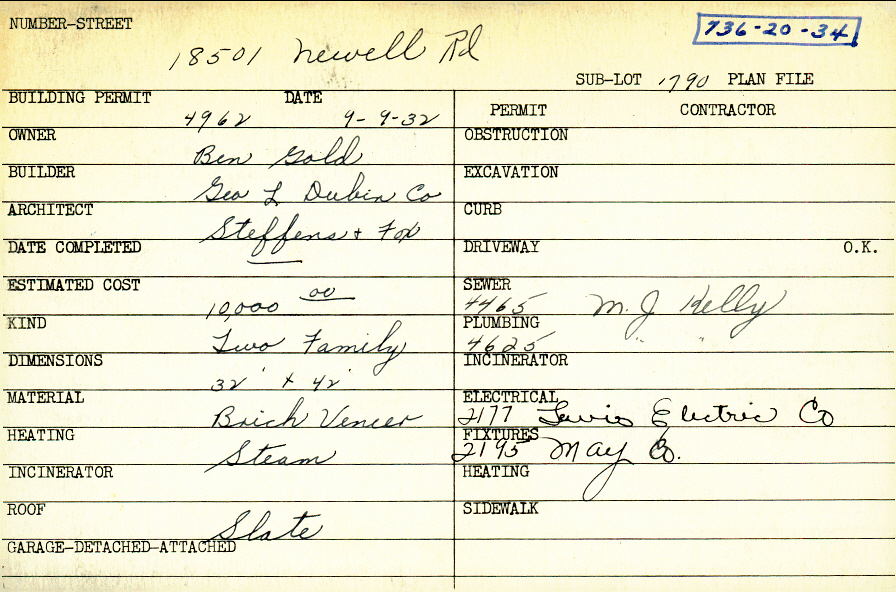 NUMBER-STREET
736-20-34
18501 Newell Rd
SUB-LOT 1790 PLAN FILE
BUILDING PERMIT DATE
4962 9-9-32
OWNER
Ben Gold
BUILDER
Geo L Dubin Co
ARCHITECT
Steffens + Fox
DATE COMPLETED
ESTIMATED COST
10,000 00
KIND
Two Family
DIMENSIONS
32' x 42'
MATERIAL
Brick Veneer
HEATING
Steam
INCINERATOR
ROOF
Slate
GARAGE-DETACHED-ATTACHED
PERMIT CONTRACTOR
OBSTRUCTION
EXCAVATION
CURB
DRIVEWAY O.K.
SEWER
4465 M. J Kelly
PLUMBING
4625 " "
INCINERATOR
ELECTRICAL
2177 Lewis Electric Co
FIXTURES
2195 May Co.
HEATING
SIDEWALK